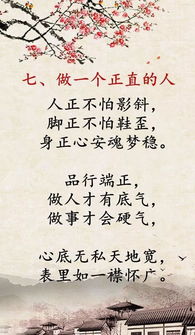 七、做一个正直的人
人正不怕影斜，
脚正不怕鞋歪，
身正心安魂梦稳。
品行端正，
做人才有底气，
做事才会硬气，
心底无私天地宽，
表里如一襟怀广。